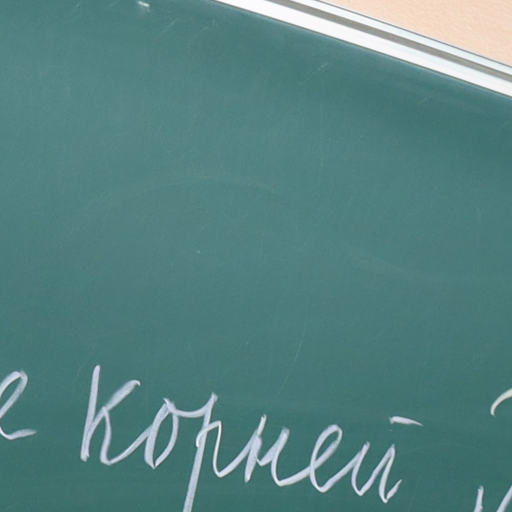 е корней